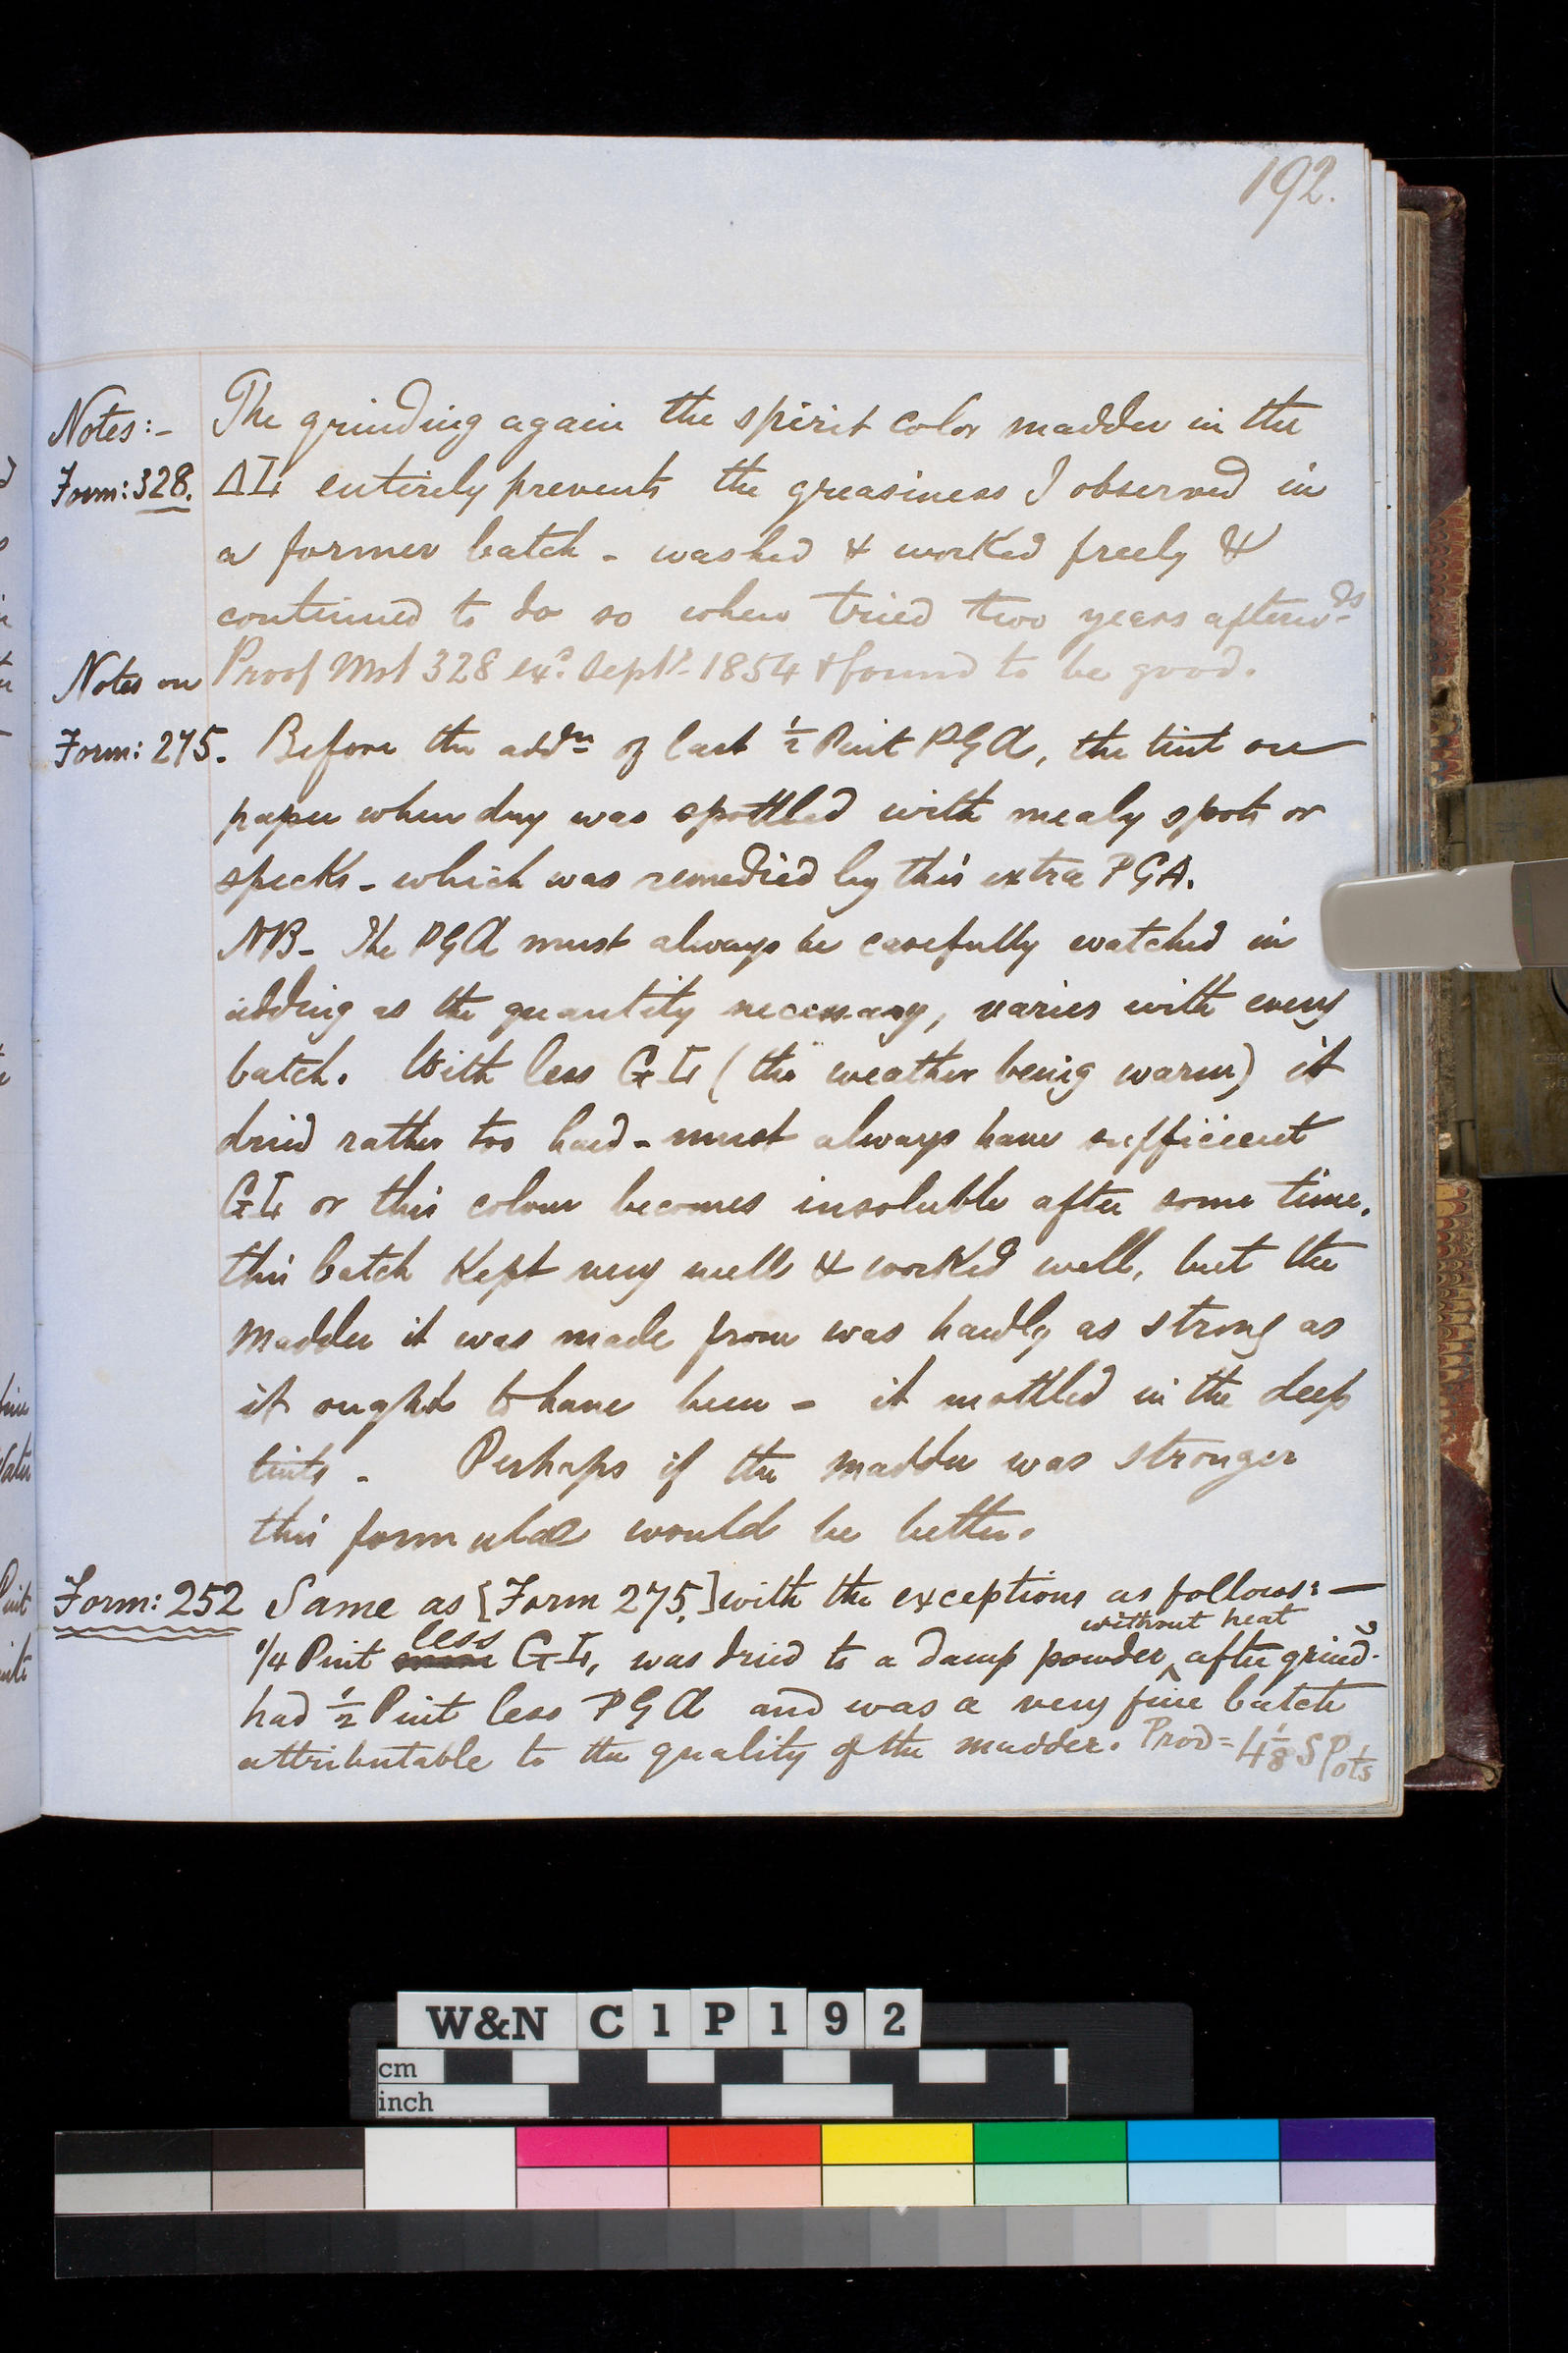 192.
Notes:- The grinding again the spirit color madder in the
Form: 328. entirely prevents the greasiness I observed in
a former batch - washed & worked freely &
continued to do so when tried two years afterwds
Proof Mst 328 exd Septr 1854 & found to be good.
Notes on
Form: 275. Before the addn of last 1/2 Pint PGA, the tint on
paper when dry was spottled with mealy spots or
specks - which was remedied by this extra PGA.
NB - The PGA must always be carefully watched in
adding as the quantity necessary, varies with every
batch. With less (the weather being warm) it
dried rather too hard - must always have sufficient
or this colour becomes insoluble after some time.
this batch Kept very well & worked well, but the
Madder it was made from was hardly as strong as
it ought to have been - it mottled in the deep
tints - Perhaps if the madder was stronger
this formulae would be better.
Form: 252 Same as [Form 275.] with the exceptions as follows: —
without heat
less
1/4 Pint was dried to a damp powder, after grindg
had 1/2 Pint less PGA and was a very fine batch
attributable to the quality of the madder. Prod = 4 1/8 S Pots
W&N C1P192
cm
inch